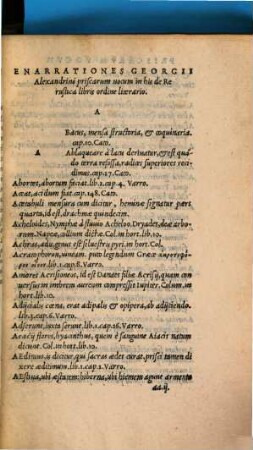 ENARRATIONES GEORGII
Alexandrini priscarum uocum in his de Re
rustica libris ordine literario.
A
Bacus, mensa structoria, & coquinaria.
cap.10. Cato.
A Ablaqueare à lacu deriuatur, & est quā
do terra resissa, radices superiores reci
dimus. cap.17. Cato.
Aborret, abortum faciat. lib.2. cap.4. Varro.
Acet, acidum fiat. cap.148. Cato.
Acetabuli mensura cum dicitur, heminæ signatur pars
quarta, id est, drachmæ quindecim.
Acheloides, Nymphæ à fluuio Acheloo. Dryades, deæ arbo-
rum. Napeæ, uallium dictæ. Col. in hort. lib.10.
Achras, ados, genus est siluestris pyri. in hort. Col.
lib.2. cap.8. Varro.
Acrisioneas, id est Danaës filiæ Acrisij, quam con
uersus in imbrem aureum compressit Iupiter. Colum. in
hort. lib.10.
Adijcialis cœna, erat adipalis & opipera, ab adijciendo.
lib.3. cap.6. Varro.
Adserunt, iuxta serunt. lib.1. cap.16. Varro.
Aeacij flores, hyacinthus, quem è sanguine Aiacis natum
dicunt. Col. in hort. lib.10.
Aeditimus, is dicitur, qui sacras ædes curat, prisci tamen di
xere æditimum. lib.1. cap.2. Varro.
Aestiua, ubi æstatem: hiberna, ubi hiemem agunt armenta
aa.ij.